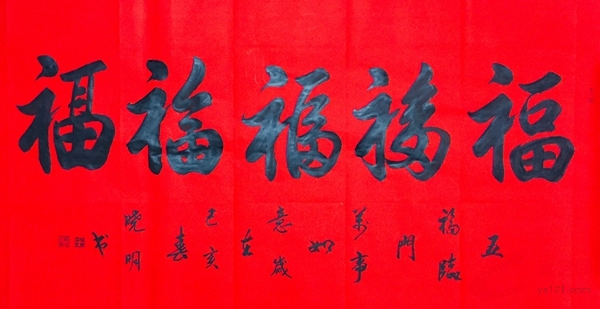 福福福福福
五
福臨
門
萬事
如
意歲
在
己亥
春
晓明
书